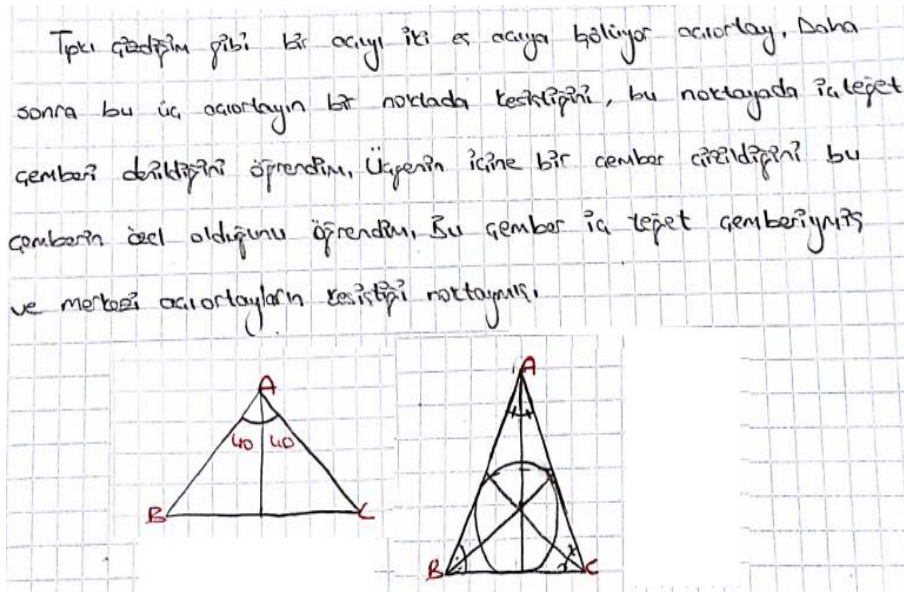 Tıpkı çizdiğim gibi bir açıyı iki eş açıya bölüyor açıortay. Daha
sonra bu üç açıortayın bir noktada kesiştiğini, bu noktayada iç teğet
çemberi denildiğini öğrendim. Üçgenin içine bir çember çizildiğini bu
çemberin özel olduğunu öğrendim. Bu çember iç teğet çemberiymiş
ve merkezi açıortayların kesiştiği noktaymış.
A
40 40
B C
A
B C